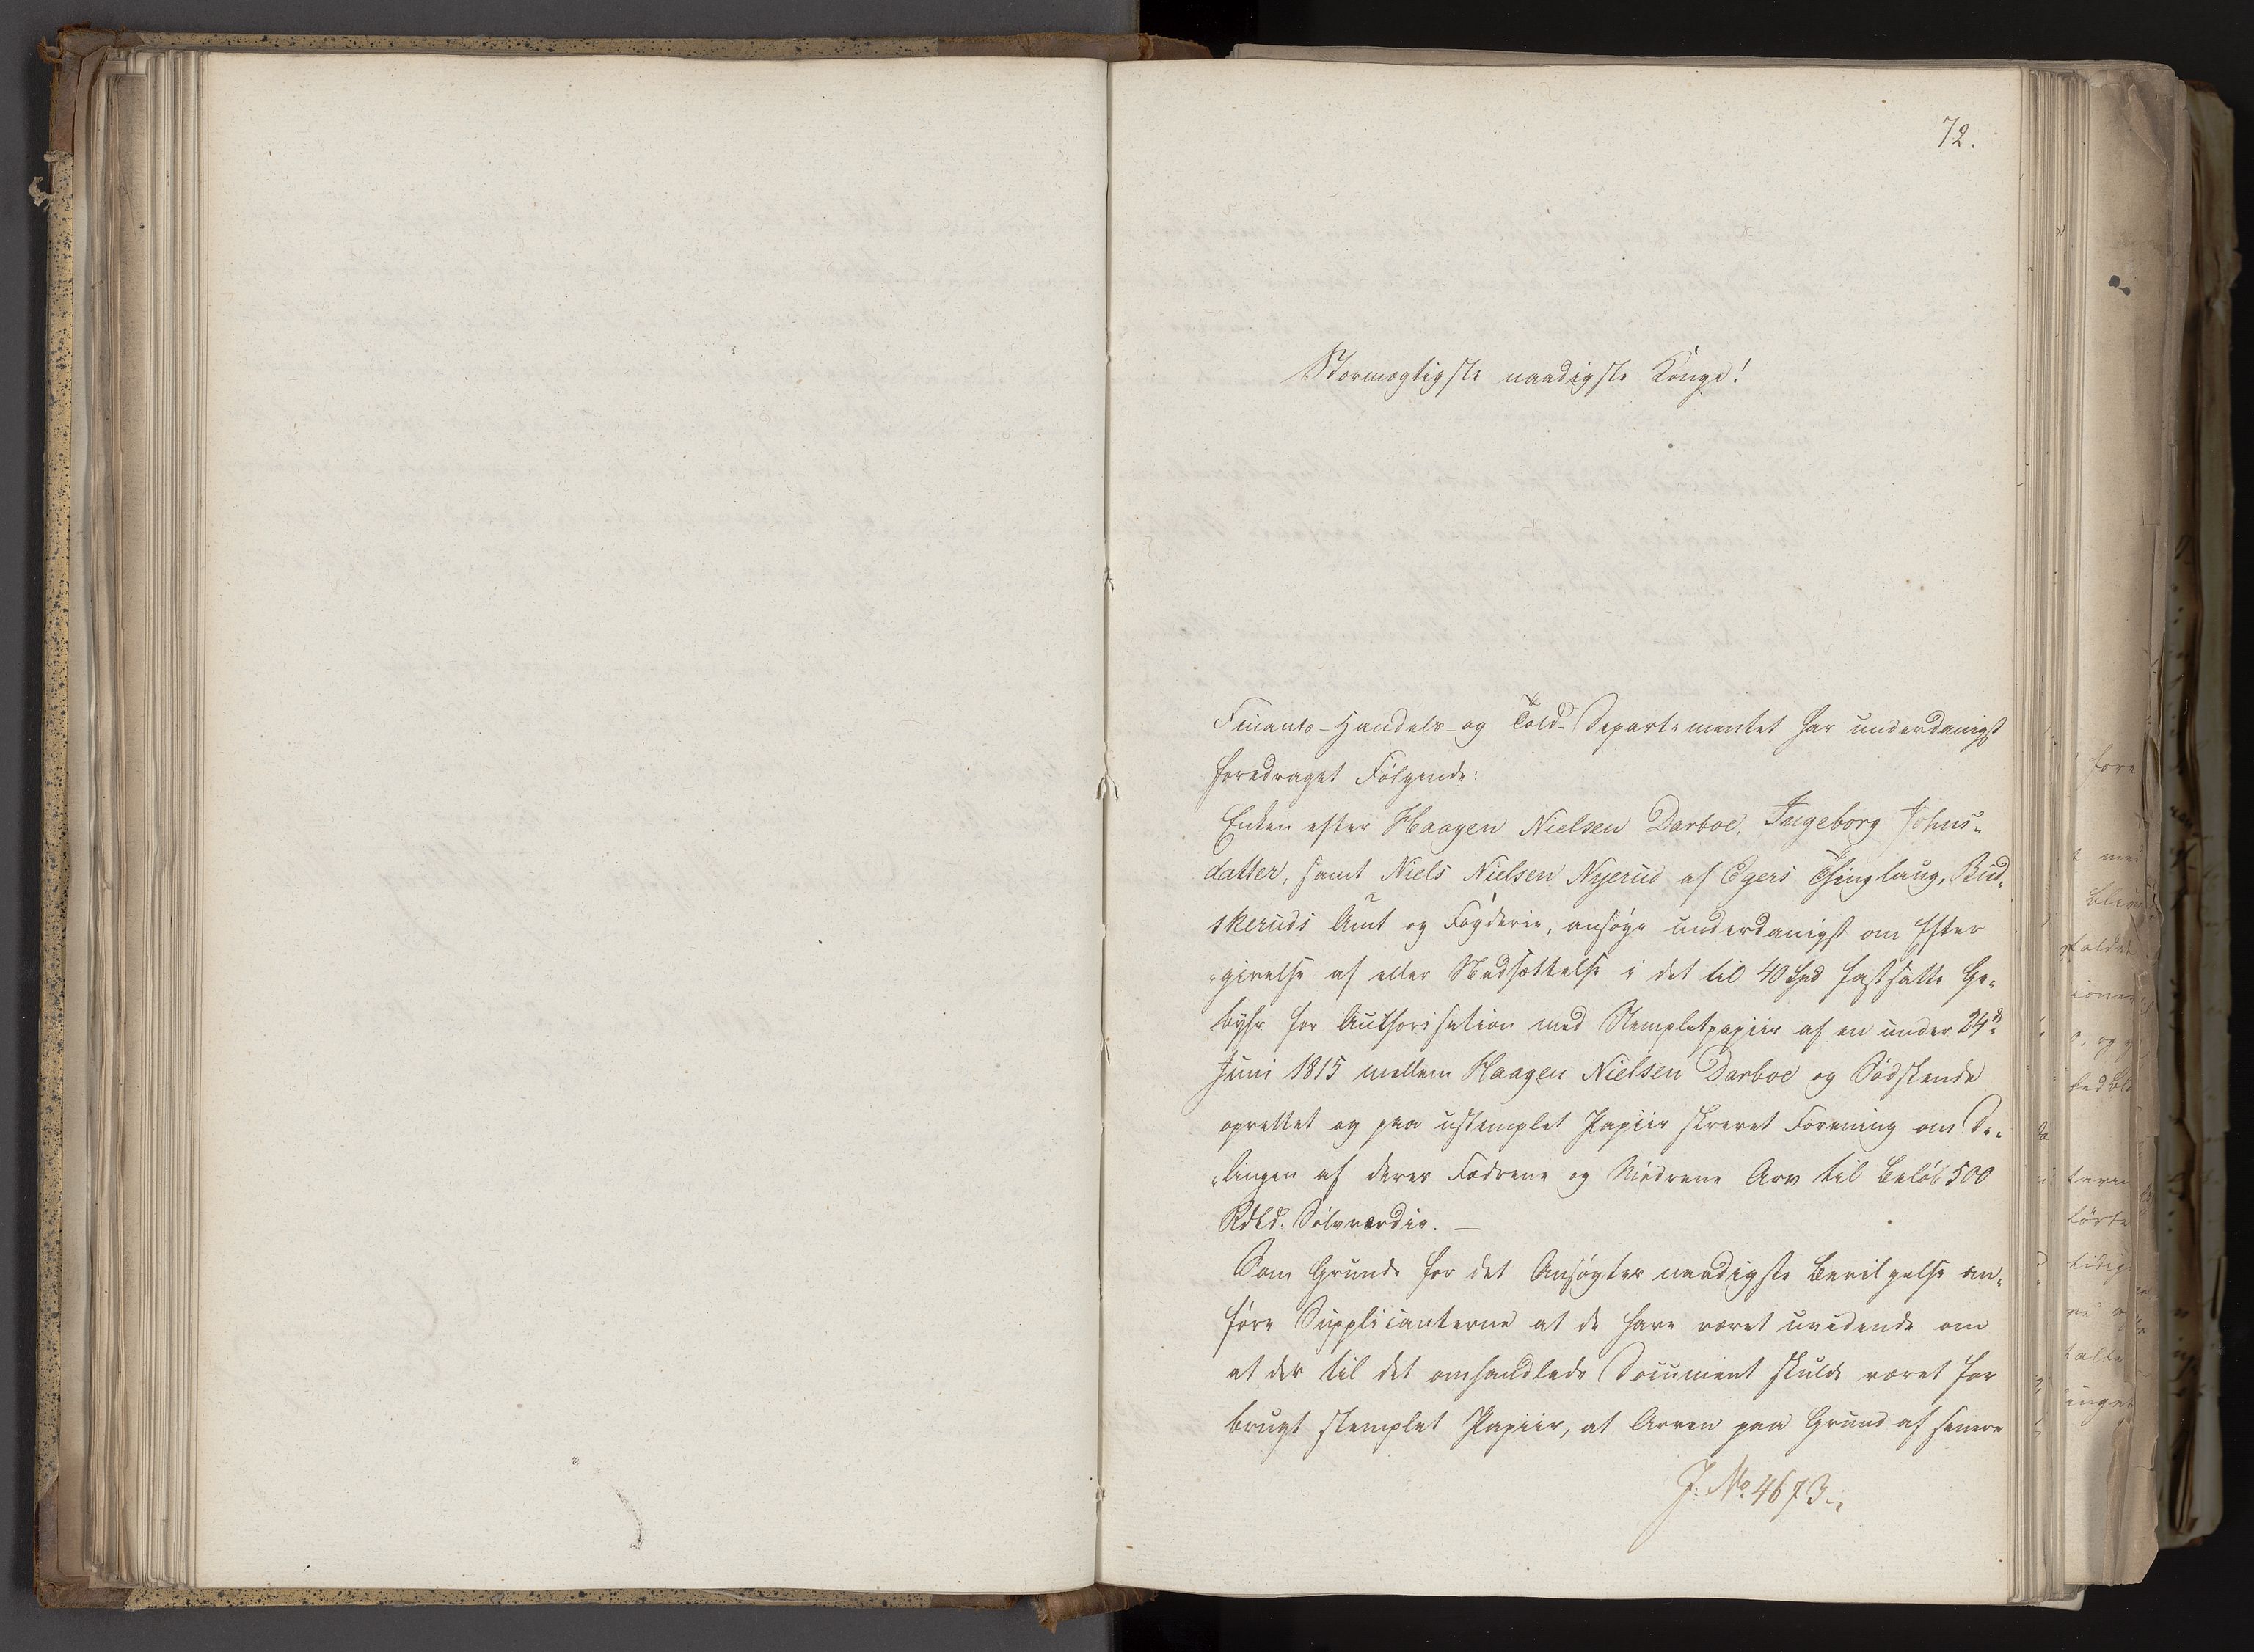 72.
Stormægtigste naadigste Konge!
Finants-Handels- og Told-Departementet har underdanigst
foredraget Følgende:
Enken efter Haagen Nielsen Darboe, Ingeborg Johns-
datter, samt Niels Nielsen Nyerud af Egers Thinglaug, Bud-
skeruds Amt og Fogderie, ansøge underdanigst om Efter
-givelse af eller Nedsættelse i det til 40 Spd fastsatte Ge-
byhr for Authorisation med Stempletpapiir af en under 24de
Juni 1815 mellem Haagen Nielsen Darboe og Sødskende
oprettet og paa ustemplet Papiir skrevet Forening om De-
-lingen af deres Fædrene og Mødrene Arv til Beløb 500
Rdbd. Sølvværdie. —
Som Grunde for det Ansøgtes naadigste Bevilgelse an-
føre Supplicanterne at de have været uvidende om
at der til det omhandlede Document skulde været for
brugt stemplet Papiir, at Arven paa Grund af senere
J. No. 4673